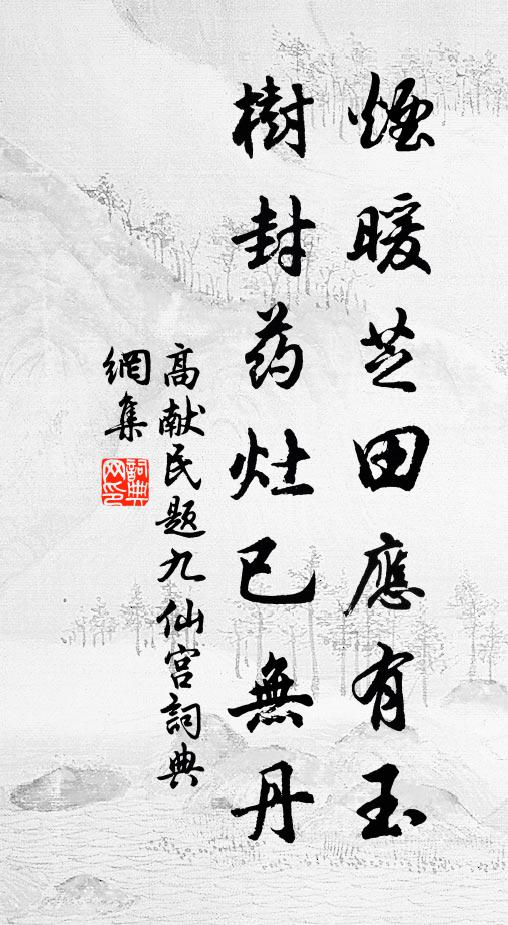 煙暖芝田應有玉
樹封药灶已無丹
高献民题九仙宫詞典
網集
詞典
网印